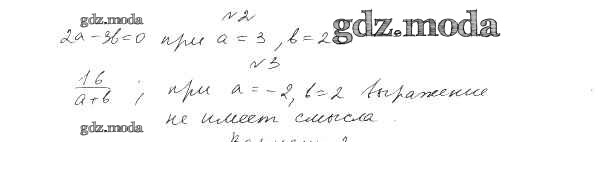 №2
gdz.moda
gdz.moda
2a - 3b = 0 при a = 3, b = 2
№3
16/(a+b) ; при a = -2, b = 2 выражение
не имеет смысла.
gdz.moda